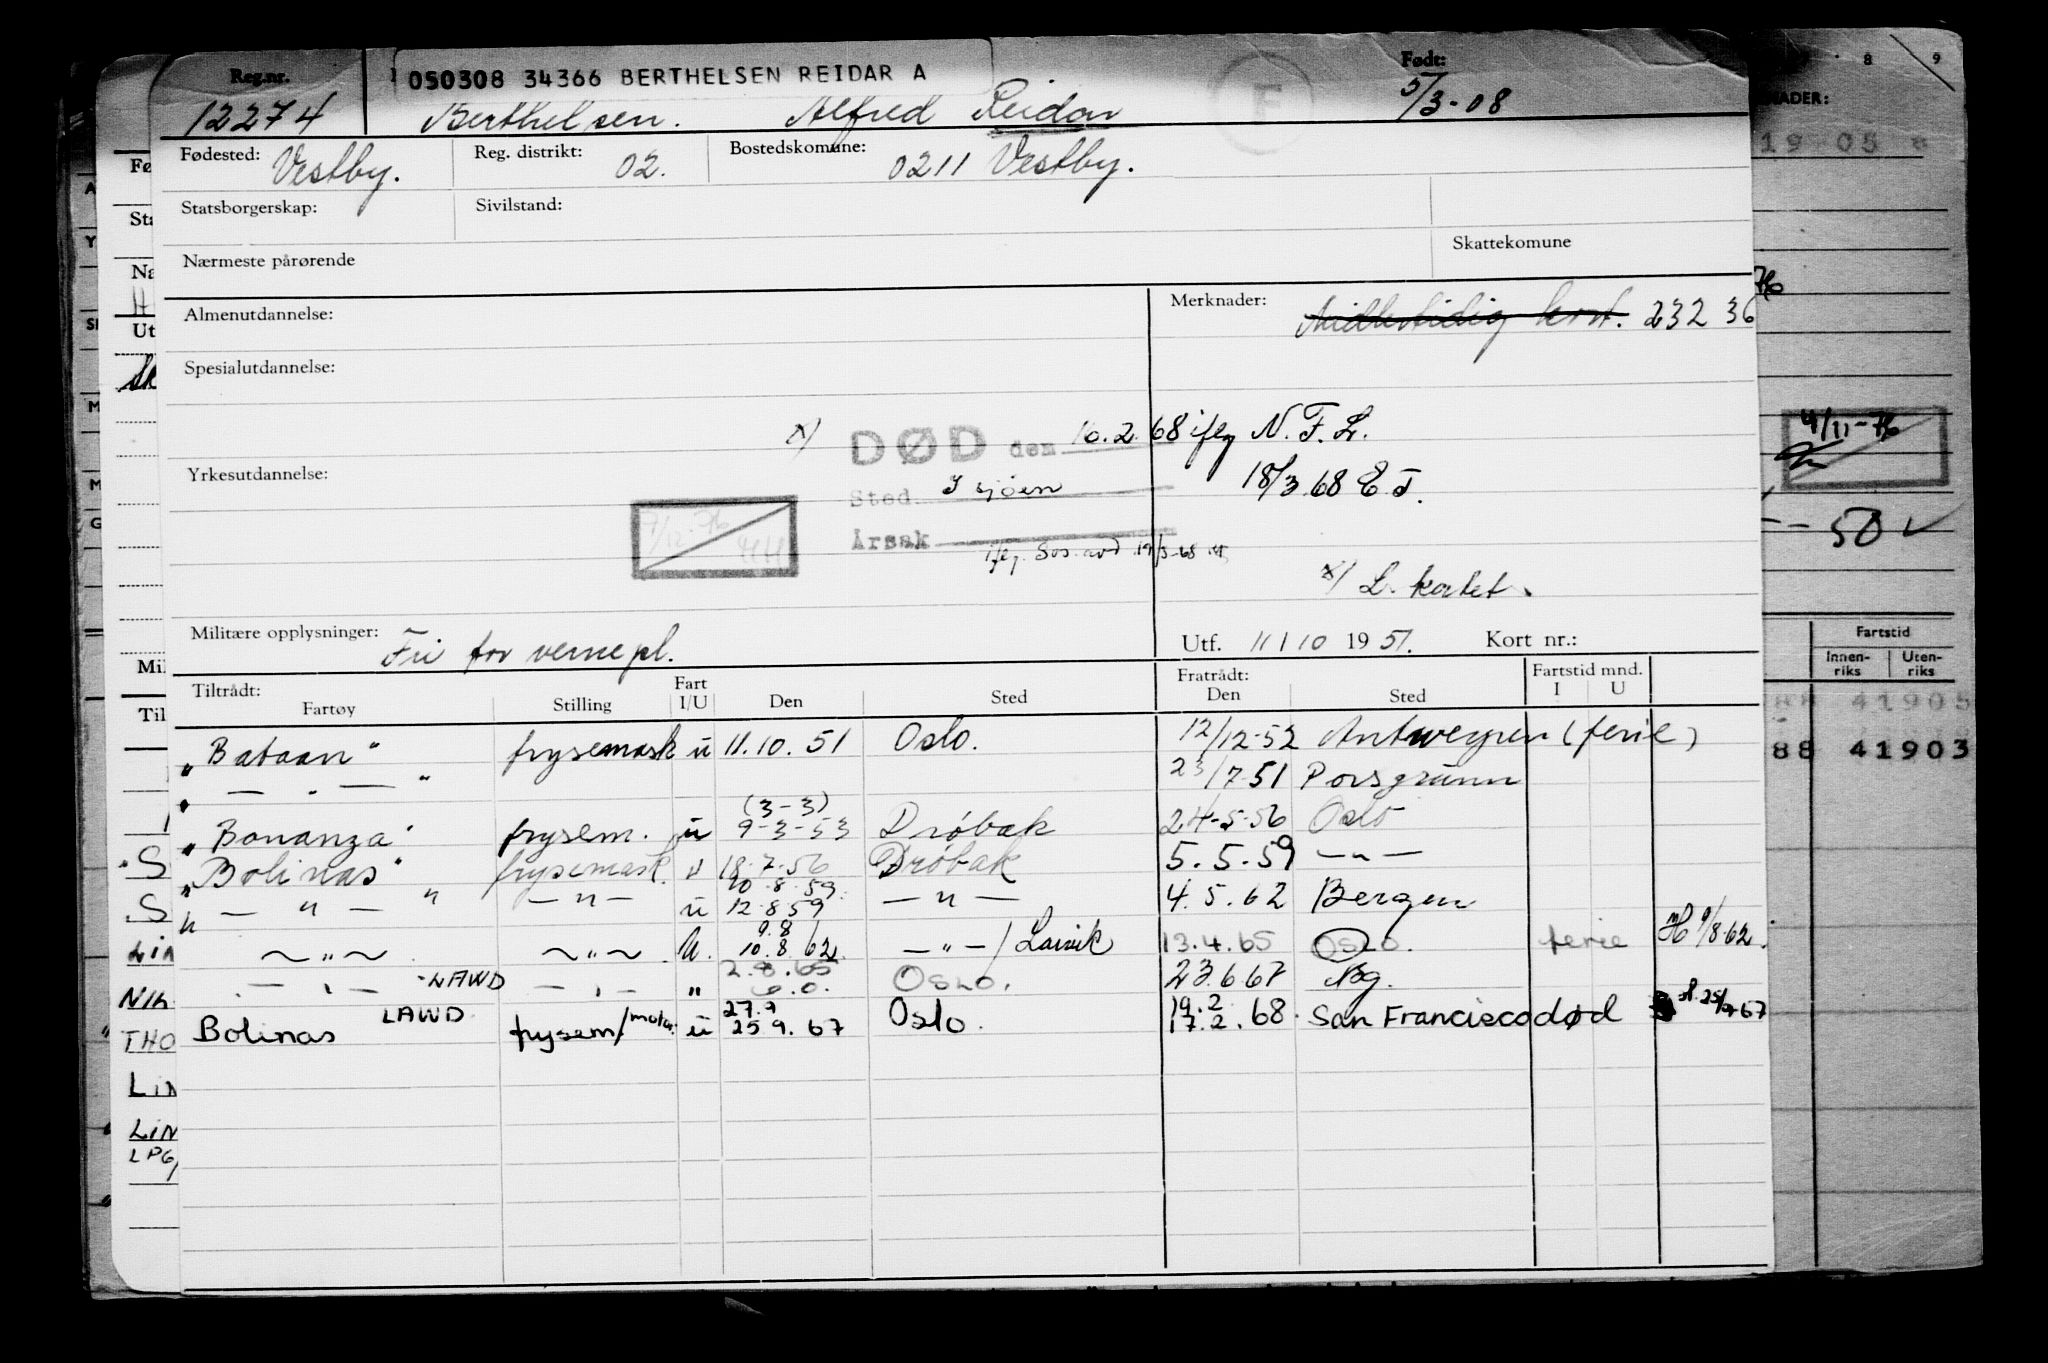 Reg.nr. 050308 34366 BERTHELSEN REIDAR A Født: 8 9
12274 Berthelsen. Alfred Reidar 5/3-08
Fødested: Vestby. Reg. distrikt: 02. Bostedskomune: 0211 Vestby.
19 05 8
Statsborgerskap: Sivilstand:
Nærmeste pårørende Skattekomune
Almenutdannelse: Merknader: Midlertidig kort. 232 36
Spesialutdannelse:
x) DØD den 16.2.68 iflg N.F.L. 4/11-76
Yrkesutdannelse: 18/3.68 E.J.
Sted I sjøen
7/12-76 Årsak 50 ✓
iflg. Sos.avd 19/3-68
x/ L. kortet.
Militære opplysninger: Fri for vernepl. Utf. 11/10 1951. Kort nr.:
Fartstid
Innen-riks Uten-riks
Tiltrådt: Fart Fratrådt: Fartstid mnd.
Fartøy Stilling I/U Den Sted Den Sted I U
88 41905
"Bataan" frysemask u 11.10.51 Oslo. 12/12-52 Antwerpen (ferie)
88 41903
— " — " 23/7-51 Porsgrunn
(3-3)
"Bonanza" frysem. u 9-3-53 Drøbak 24-5-56 Oslo
"Bolinas" frysemask. u 18.7.56 Drøbak 5.5.59 — " —
10.8.59.
" — " — " — " — u 12.8.59 — " — 4.5.62 Bergen
9.8/
— " — — " — U. 10.8.62 — " — / Larvik 13.4.65 Oslo. ferie 9/8-62.
2.8.65
— " — -LAWD — " — " Oslo. 23.6.67 Bg.
LAWD 27.9 19.2
Bolinas frysem/motor. u 25.9.67 Oslo. 17.2.68. San Francisco død 25/9 67